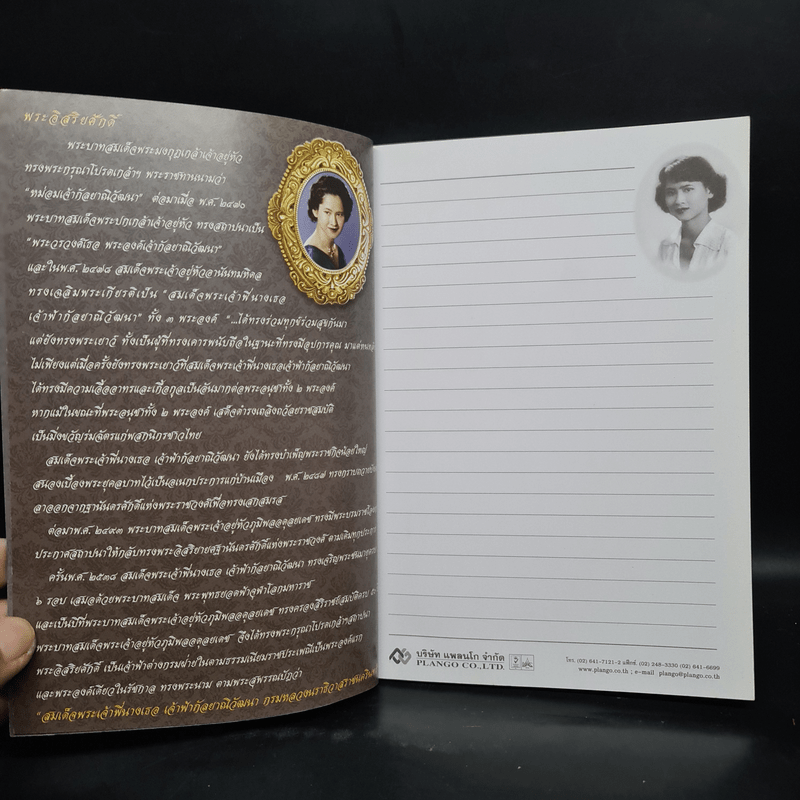 พระอิสริยศักดิ์
พระบาทสมเด็จพระมงกุฎเกล้าเจ้าอยู่หัว
ทรงพระกรุณาโปรดเกล้าฯ พระราชทานนามว่า
"หม่อมเจ้ากัลยาณิวัฒนา" ต่อมาเมื่อ พ.ศ. ๒๔๗๐
พระบาทสมเด็จพระปกเกล้าเจ้าอยู่หัว ทรงสถาปนาเป็น
"พระวรวงศ์เธอ พระองค์เจ้ากัลยาณิวัฒนา"
และในพ.ศ. ๒๔๗๘ สมเด็จพระเจ้าอยู่หัวอานันทมหิดล
ทรงเฉลิมพระเกียรติเป็น "สมเด็จพระเจ้าพี่นางเธอ
เจ้าฟ้ากัลยาณิวัฒนา" ทั้ง ๓ พระองค์ "...ได้ทรงร่วมทุกข์ร่วมสุขกันมา
แต่ยังทรงพระเยาว์ ทั้งเป็นผู้ที่ทรงเคารพนับถือในฐานะที่ทรงมีอุปการคุณ
ไม่เพียงแต่เมื่อครั้งยังทรงพระเยาว์ที่สมเด็จพระเจ้าพี่นางเธอเจ้าฟ้ากัลยาณิวัฒนา
ได้ทรงมีความเอื้ออาทรและเกื้อกูลเป็นอันมากต่อพระอนุชาทั้ง ๒ พระองค์
หากแม้ในขณะที่พระอนุชาทั้ง ๒ พระองค์ เสด็จดำรงเถลิงถวัลยราชสมบัติ
เป็นมิ่งขวัญร่มฉัตรแก่พสกนิกรชาวไทย
สมเด็จพระเจ้าพี่นางเธอ เจ้าฟ้ากัลยาณิวัฒนา ยังได้ทรงบำเพ็ญพระราชกิจน้อยใหญ่
สนองเบื้องพระยุคลบาทไว้เป็นอเนกประการแก่บ้านเมือง พ.ศ. ๒๔๘๗
ลาออกจากฐานันดรศักดิ์แห่งพระราชวงศ์เพื่อทรงเสกสมรส
ต่อมาพ.ศ. ๒๔๙๓ พระบาทสมเด็จพระเจ้าอยู่หัวภูมิพลอดุลยเดช
ประกาศสถาปนาให้กลับทรงพระอิสริยยศฐานันดรศักดิ์แห่งพระราชวงศ์
ครั้นพ.ศ. ๒๕๓๘ สมเด็จพระเจ้าพี่นางเธอ เจ้าฟ้ากัลยาณิวัฒนา
๖ รอบ เสมอด้วยพระบาทสมเด็จ พระพุทธยอดฟ้าจุฬาโลกมหาราช
และเป็นปีที่พระบาทสมเด็จพระเจ้าอยู่หัวภูมิพลอดุลยเดช ทรงครองสิริราชสมบัติครบ
พระบาทสมเด็จพระเจ้าอยู่หัวภูมิพลอดุลยเดช จึงได้ทรงพระกรุณาโปรดเกล้าฯสถาปนา
พระอิสริยศักดิ์ เป็นเจ้าฟ้าต่างกรมฝ่ายในตามธรรมเนียมราชประเพณีเป็นพระองค์แรก
และพระองค์เดียวในรัชกาล ทรงพระนาม ตามพระสุพรรณบัฏว่า
"สมเด็จพระเจ้าพี่นางเธอ เจ้าฟ้ากัลยาณิวัฒนา กรมหลวงนราธิวาสราชนครินทร์
บริษัท แพลนโก จำกัด
PLANGO CO.,LTD.
โทร. (02) 641-7121-2 แฟ็กซ์. (02) 248-3330 (02) 641-6699
www.plango.co.th ; e-mail plango@plango.co.th